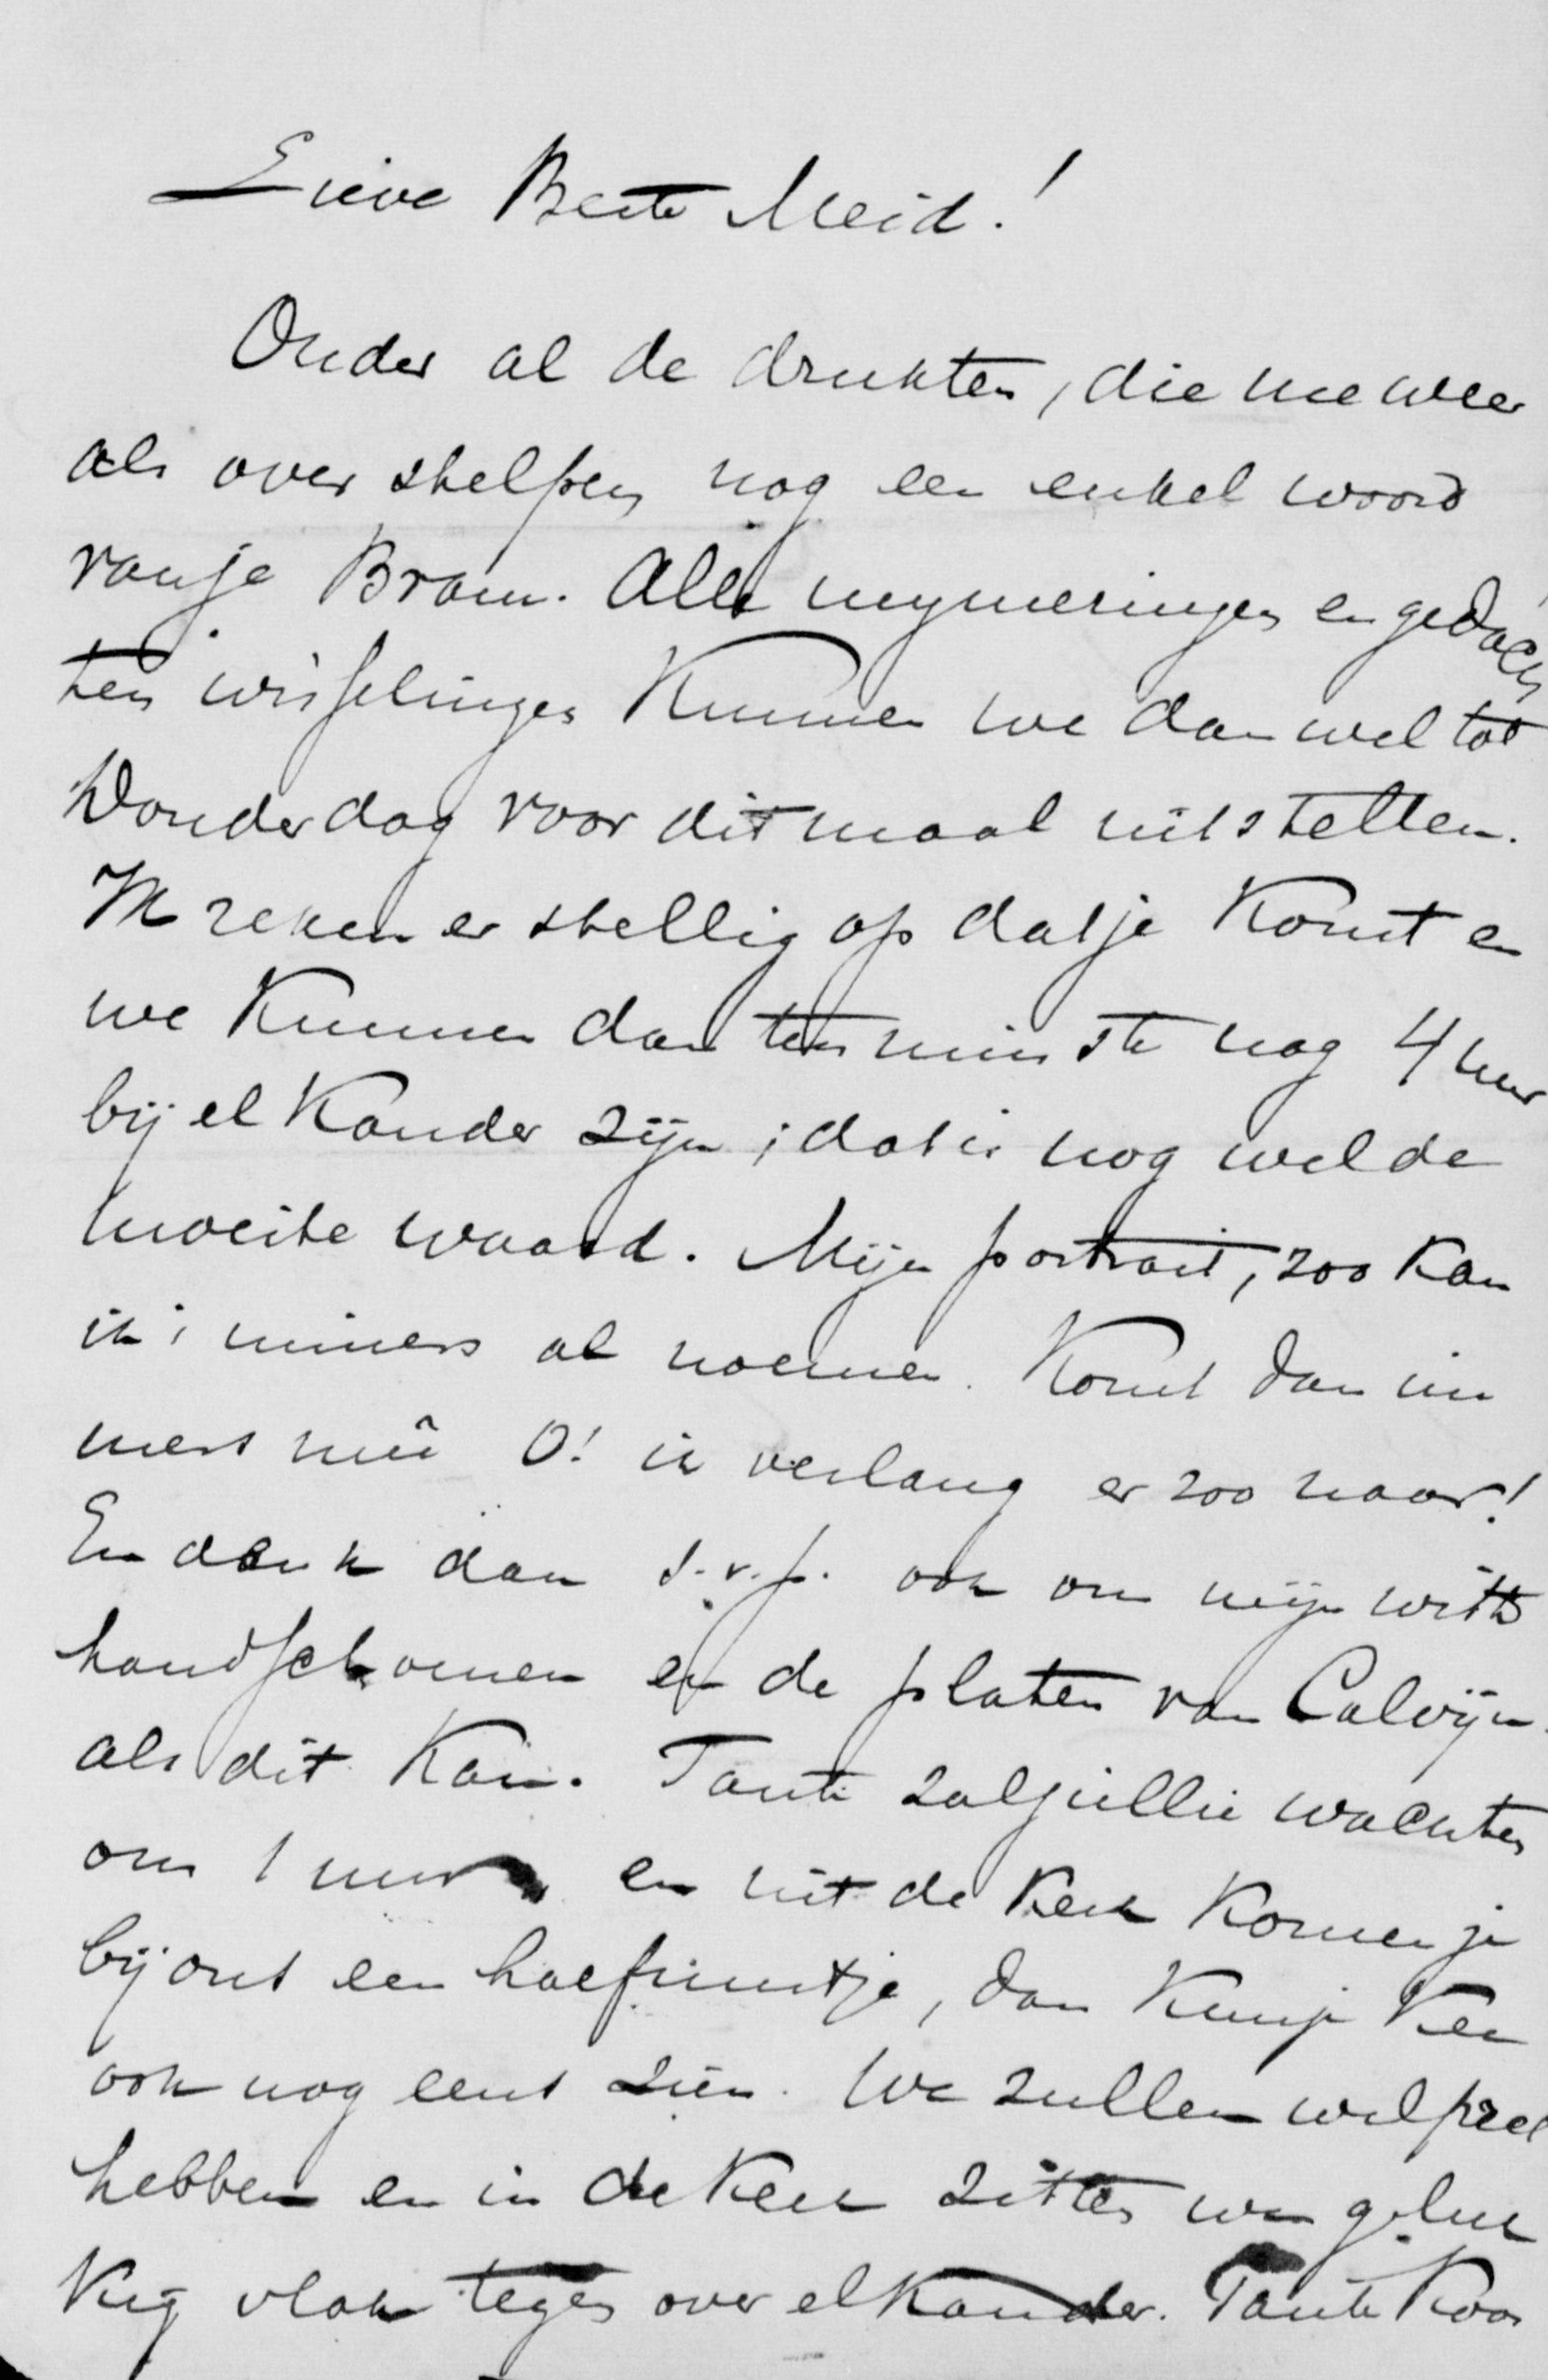 Lieve Beste Meid!
Onder al de drukten, die me weer
als over stelpen nog een enkel woord
van je Bram. Alle mymeringen en gedach
ten wisselingen Kunnen we dan wel tot
Donderdag voor ditmaal uitstellen.
Ik reken er stellig op dat je Komt en
we Kunnen dan ten minste nog 4 uur
bij el Kander zijn; dat is nog wel de
moeite waard. Mijn portrait, zoo Kan
ik 't immers al noemen. Komt dan im
mers meê O! ik verlang er zoo naar!
En denk dan s.v.p. ook om mijn witte
handschoenen en de platen van Calvijn.
als dit Kan. Tante zal jullie wachten
om 1 uur en uit de Kerk Komen je
bij ons een half uurtje, dan Kun je
ook nog eens zien. We zullen wel pret
hebben en in de Kerk zitten we geluk
Kig vlak tegen over elKander. Tante Koos